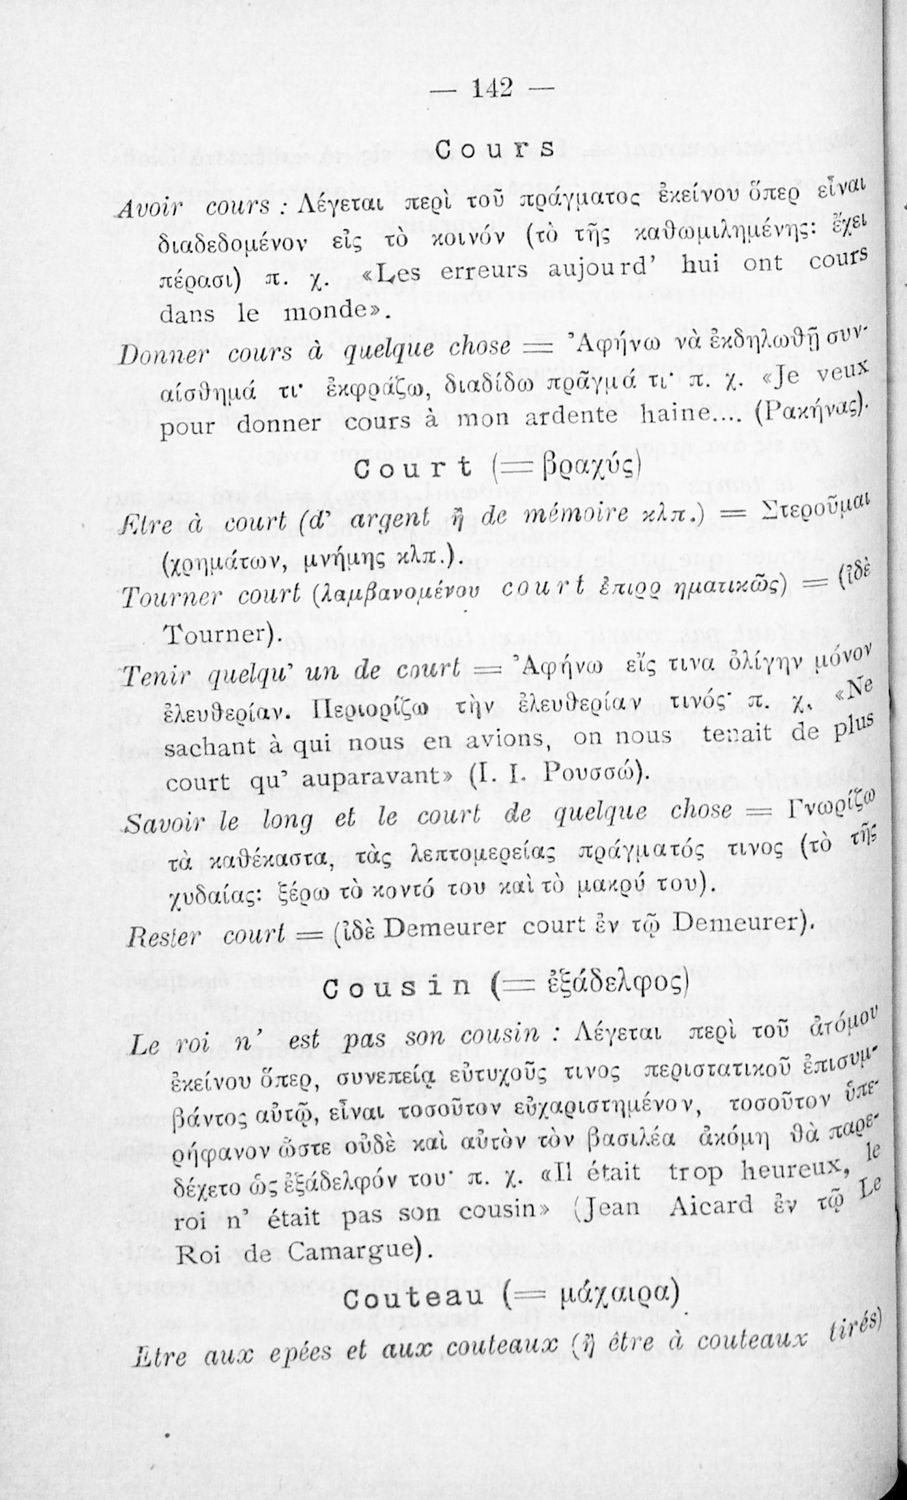 — 142 —
Cours
Avoir cours : Λέγεται περὶ τοῦ πράγματος ἐκείνου ὅπερ εἶναι
διαδεδομένον εἰς τὸ κοινόν (τὸ τῆς καθωμιλημένης: ἔχει
πέρασι) π. χ. «Les erreurs aujourd’ hui ont cours
dans le monde».
Donner cours à quelque chose = Ἀφήνω νὰ ἐκδηλωθῇ συν-
αίσθημά τι· ἐκφράζω, διαδίδω πρᾶγμά τι· π. χ. «Je veux
pour donner cours à mon ardente haine.... (Ρακήνας).
Court (= βραχύς)
Etre à court (d’ argent ἢ de mémoire κλπ.) = Στεροῦμαι
(χρημάτων, μνήμης κλπ.).
Tourner court (λαμβανομένου court ἐπιρρ ηματικῶς) = (ἰδὲ
Tourner).
Tenir quelqu’ un de court = Ἀφήνω εἴς τινα ὀλίγην μόνον
ἐλευθερίαν. Περιορίζω τὴν ἐλευθερίαν τινός· π. χ. «Ne
sachant à qui nous en avions, on nous tenait de plus
court qu’ auparavant» (Ι. Ι. Ρουσσώ).
Savoir le long et le court de quelque chose = Γνωρίζω
τὰ καθέκαστα, τὰς λεπτομερείας πράγματός τινος (τὸ τῆς
χυδαίας: ξέρω τὸ κοντό του καὶ τὸ μακρύ του).
Rester court = (ἰδὲ Demeurer court ἐν τῷ Demeurer).
Cousin (= ἐξάδελφος)
Le roi n’ est pas son cousin : Λέγεται περὶ τοῦ ἀτόμου
ἐκείνου ὅπερ, συνεπείᾳ εὐτυχοῦς τινος περιστατικοῦ ἐπισυμ-
βάντος αὐτῷ, εἶναι τοσοῦτον εὐχαριστημένον, τοσοῦτον ὑπε-
ρήφανον ὥστε οὐδὲ καὶ αὐτὸν τὸν βασιλέα ἀκόμη θὰ παρε-
δέχετο ὡς ἐξάδελφόν του· π. χ. «Il était trop heureux, le
roi n’ était pas son cousin» (Jean Aicard ἐν τῷ Le
Roi de Camargue).
Couteau (= μάχαιρα)
Etre aux epées et aux couteaux (ἢ être à couteaux tirés)